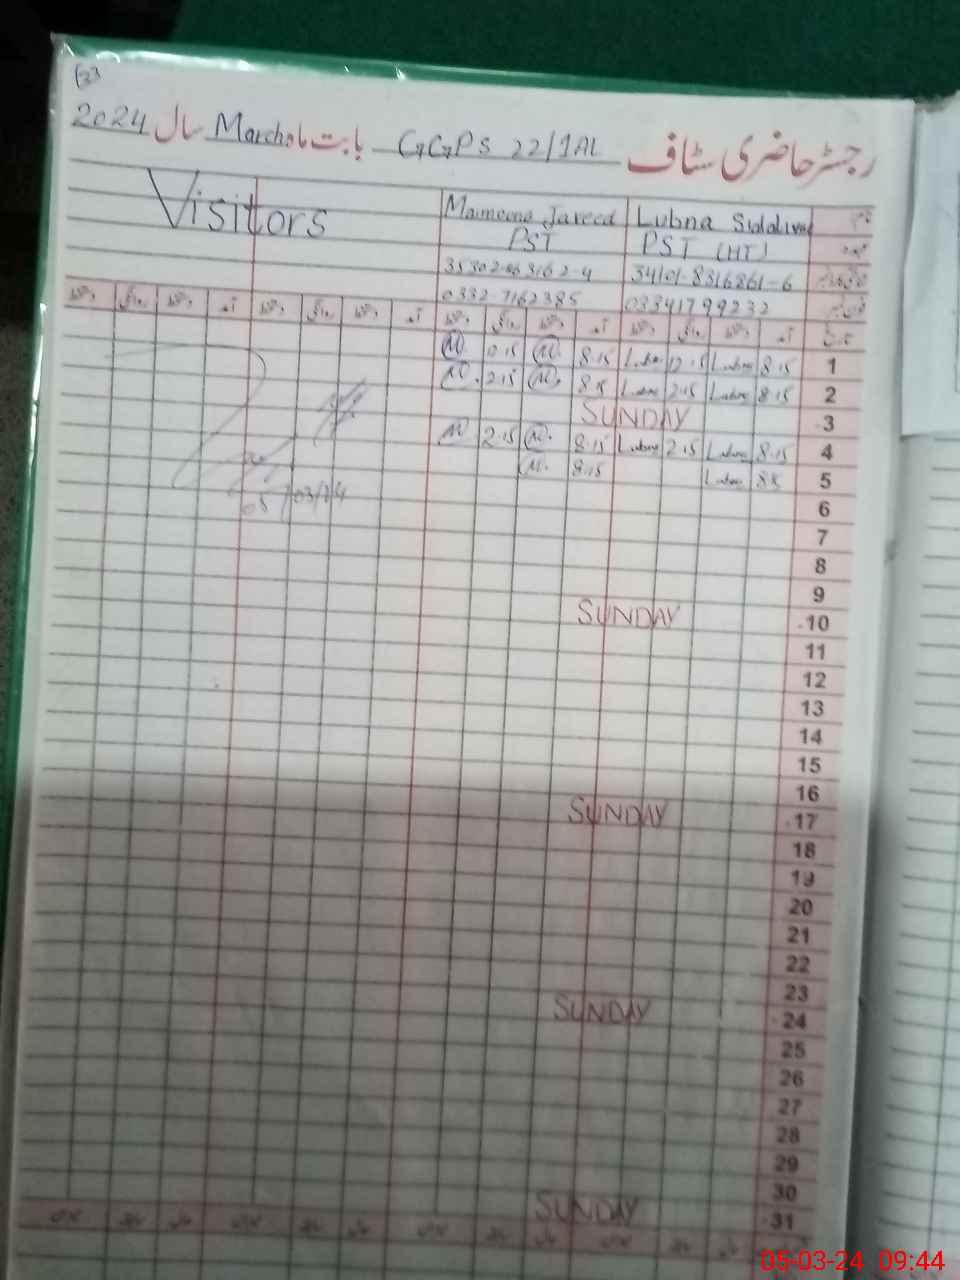 رجسٹر حاضری سٹاف GGPS 22/1AL بابت ماہ March سال 2024
Visitors
Lubna
PST (HT)
34101-8316861-6
03341799232
Javeed
PST
0332-7162385
آمد دستخط روانگی دستخط آمد دستخط روانگی دستخط آمد دستخط روانگی دستخط آمد دستخط روانگی دستخط
1 8.15 Lubna Lubna 8.15 M.
2 8.15 Lubna 2.15 Lubna M. 2.15 M.
3 SUNDAY
4 8.15 Lubna 2.15 Lubna 8.15 M. 2.15 M
5 Lubna 8.15 M.
05/03/24
6
7
8
9
10 SUNDAY
11
12
13
14
15
16
17 SUNDAY
18
19
20
21
22
23
24 SUNDAY
25
26
27
28
29
30
31 SUNDAY
05-03-24 09:44